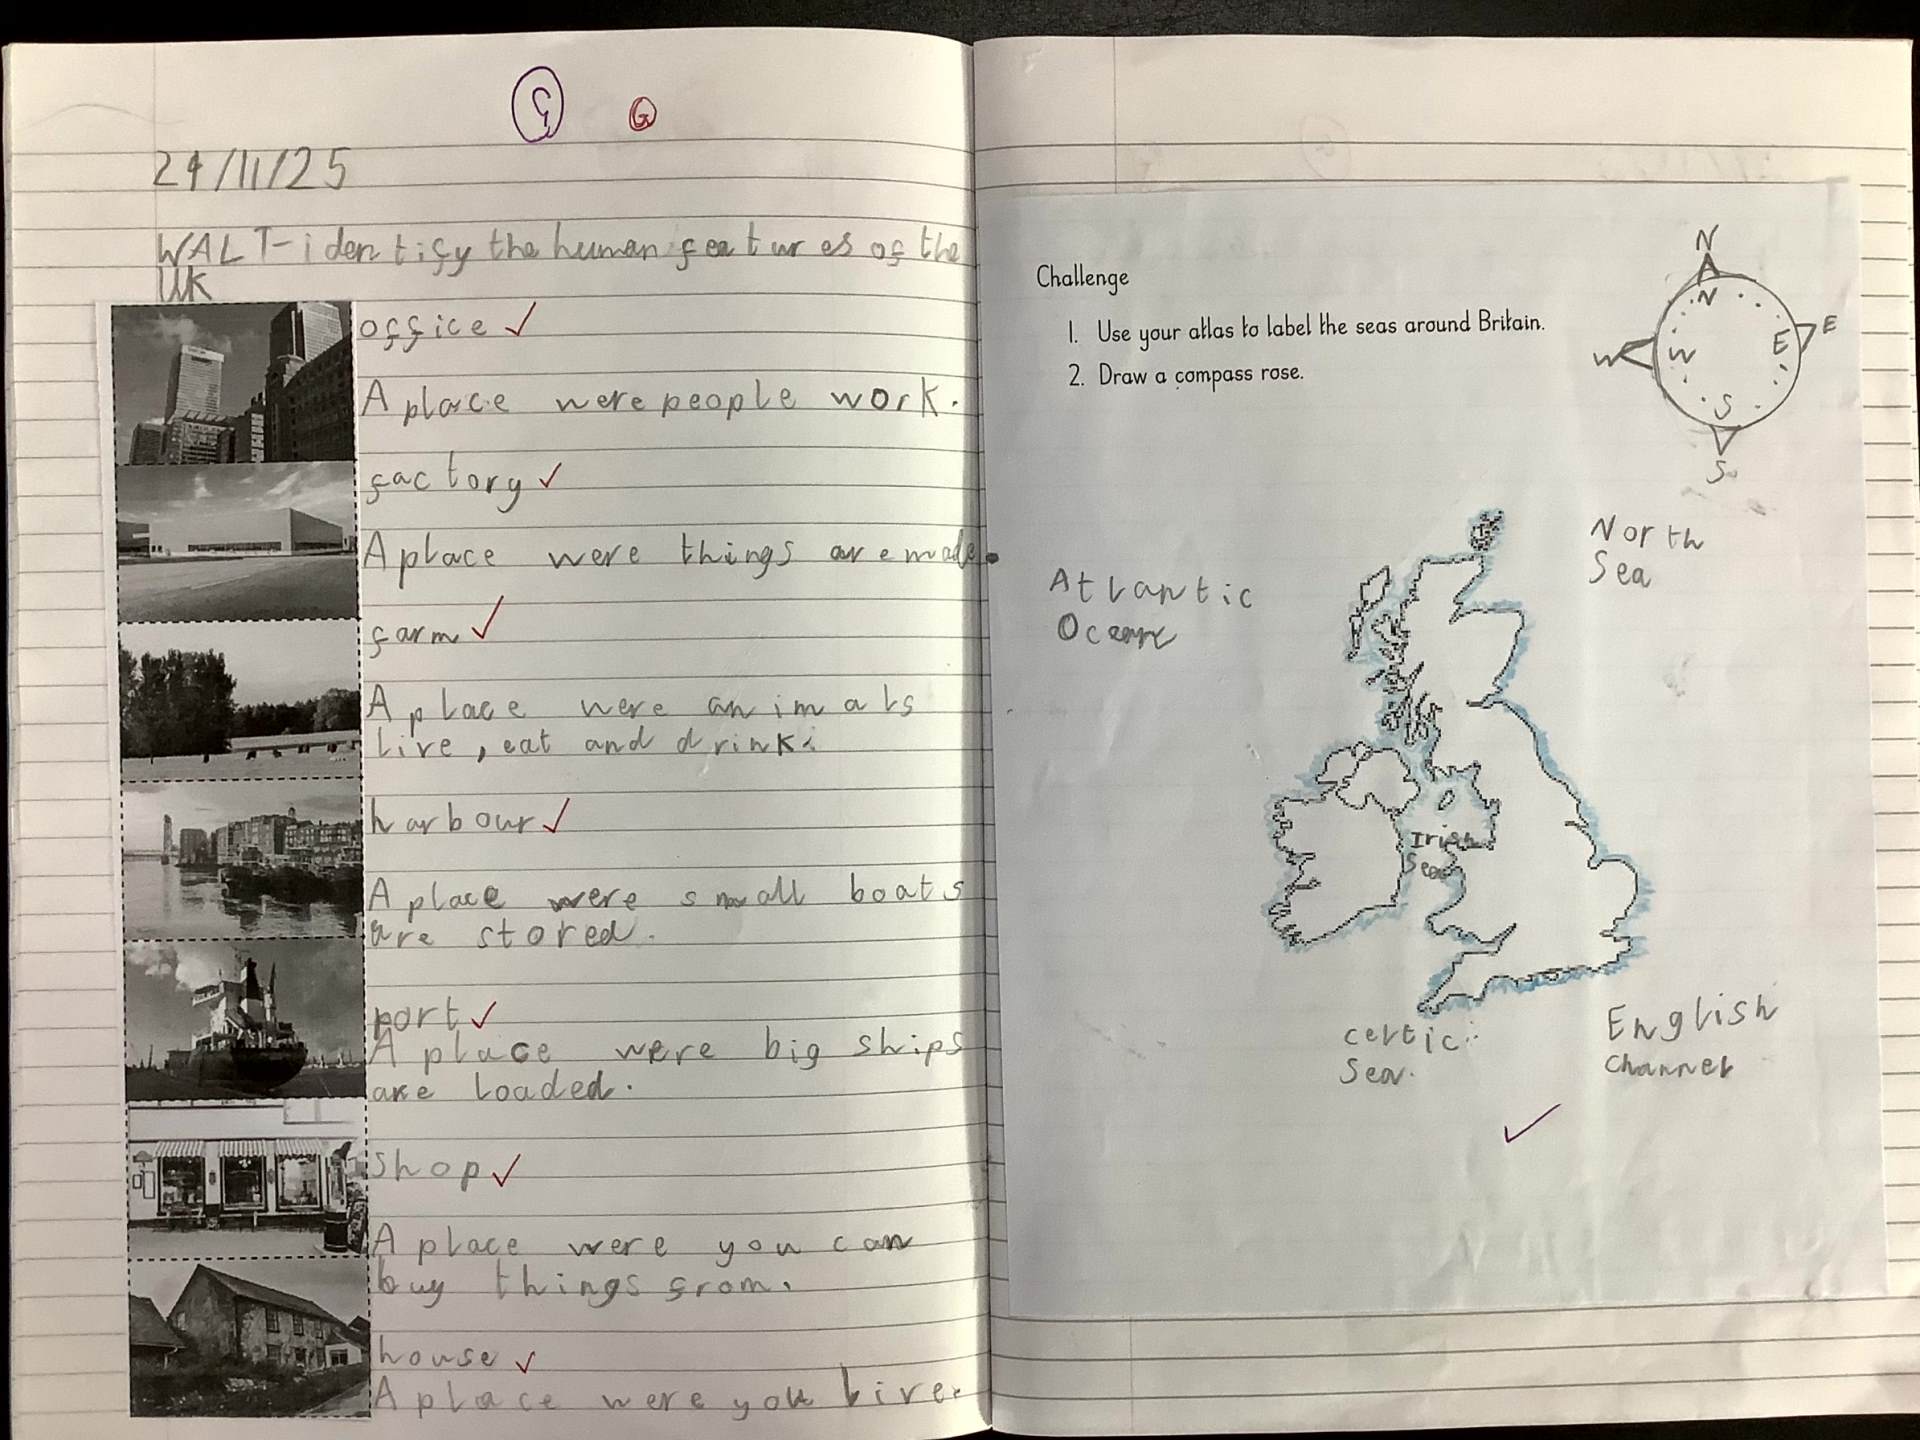 G G
24/11/25
WALT-identify the human features of the
UK
office
A place were people work.
factory
A place were things are made.
farm
A place were animals
live, eat and drink.
harbour
A place were small boats
are stored.
port
A place were big ships
are loaded.
shop
A place were you can
buy things from.
house
A place were you live.
Challenge
1. Use your atlas to label the seas around Britain.
2. Draw a compass rose.
N
N
W W E E
S
S
North
Sea
Atlantic
Ocean
Irish
Sea
Celtic
Sea.
English
Channel